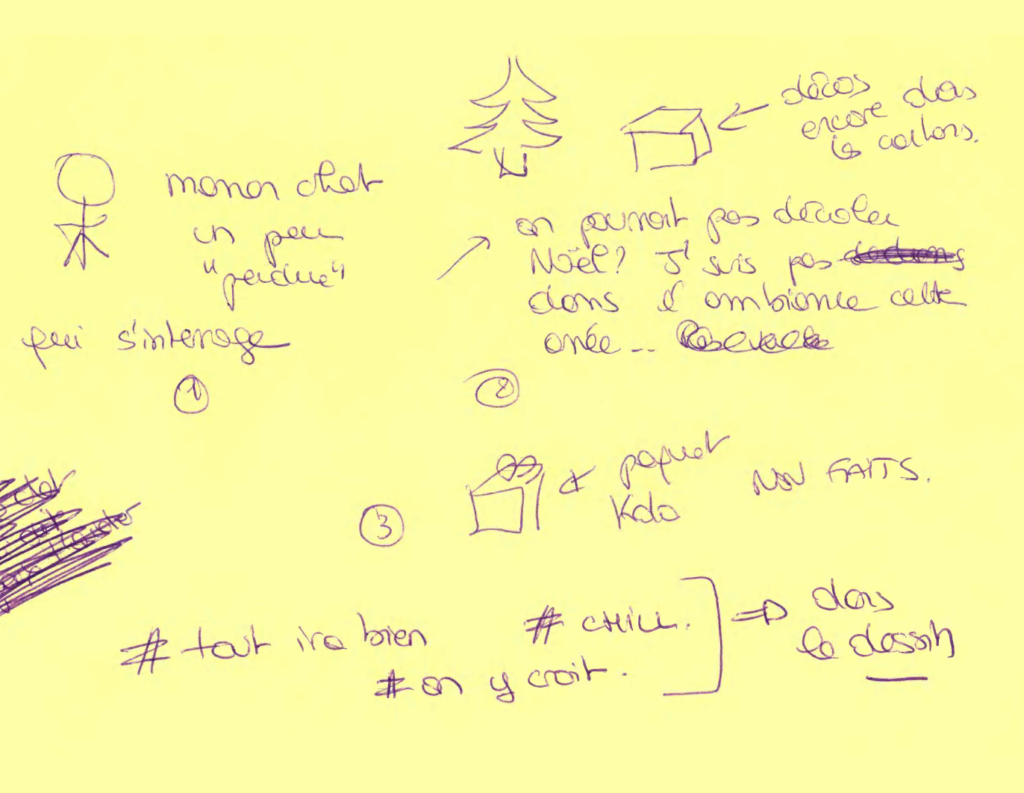 maman chat
un peu
"perdue"
qui s'interroge
①
décos
encore dans
les cartons.
on pourrait pas décaler
Noël? J'suis pas
dans l'ambiance cette
année...
②
③
paquet
Kdo
NON FAITS.
# tout ira bien
# CHILL.
# on y croit.
dans
le dessin